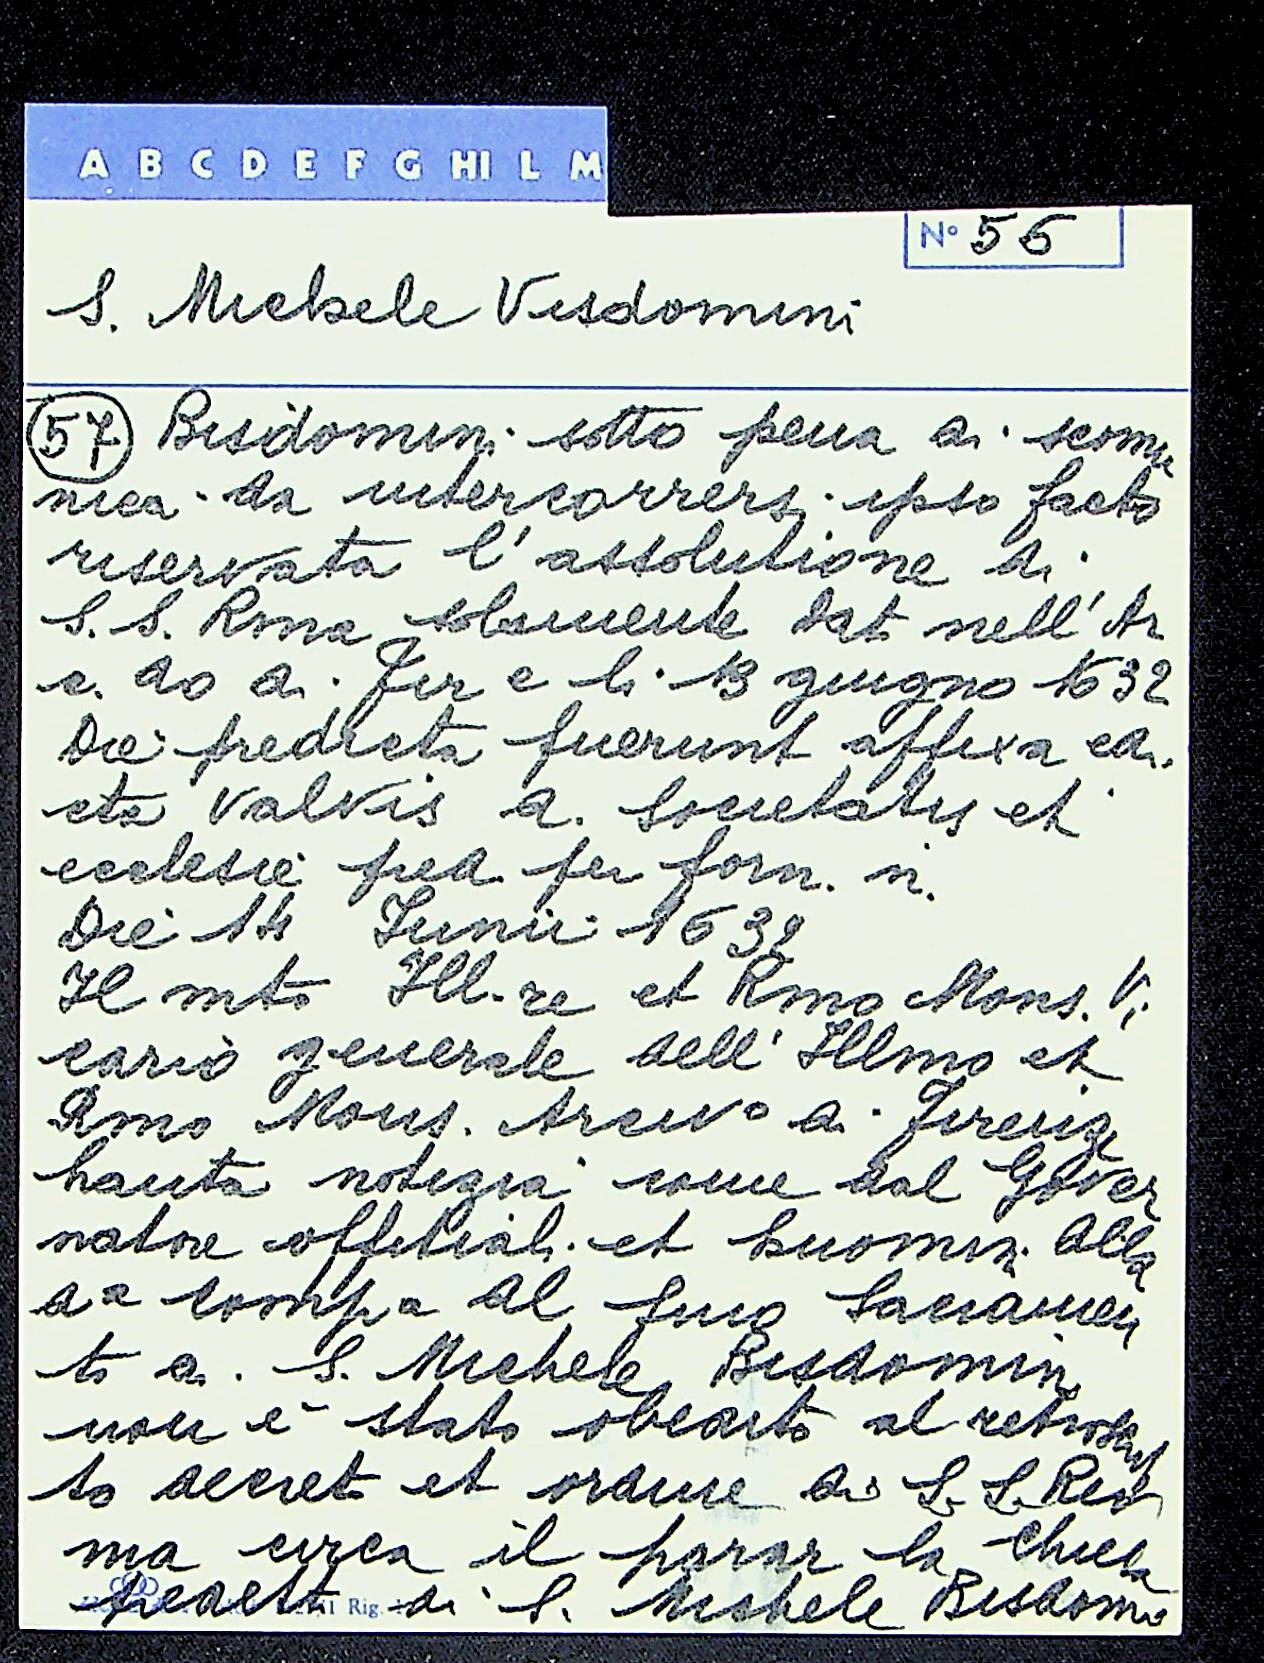 A B C D E F G HI L M
N° 56
S. Michele Visdomini
57 Bisidomini sotto pena di scomu
nica da intercorrersi ipso facto
riservata l'assolutione di
S. S. Rma solamente dat nell'Ar
c. do di Fir e li 13 giugno 1632
Die predicta fuerunt affixa edi
cta valvis d. Societatis et
ecclesie pred. per forn. n.
Die 14 Junii 1632
Il mto Ill.re et Rmo Mons. Vi
cario generale dell'Illmo et
Rmo Mons. Arciv° di Firenze
hauta notizia come dal Gover
natore offitiali et huomini della
da compa del Smo Sacramen
to di S. Michele Bisdomini
non è stato obedito al retroscrit
to decreto et ordine di S. S. Rev
ma circa il parar la chiesa
predett di S. Michele Bisdomi
Rig.